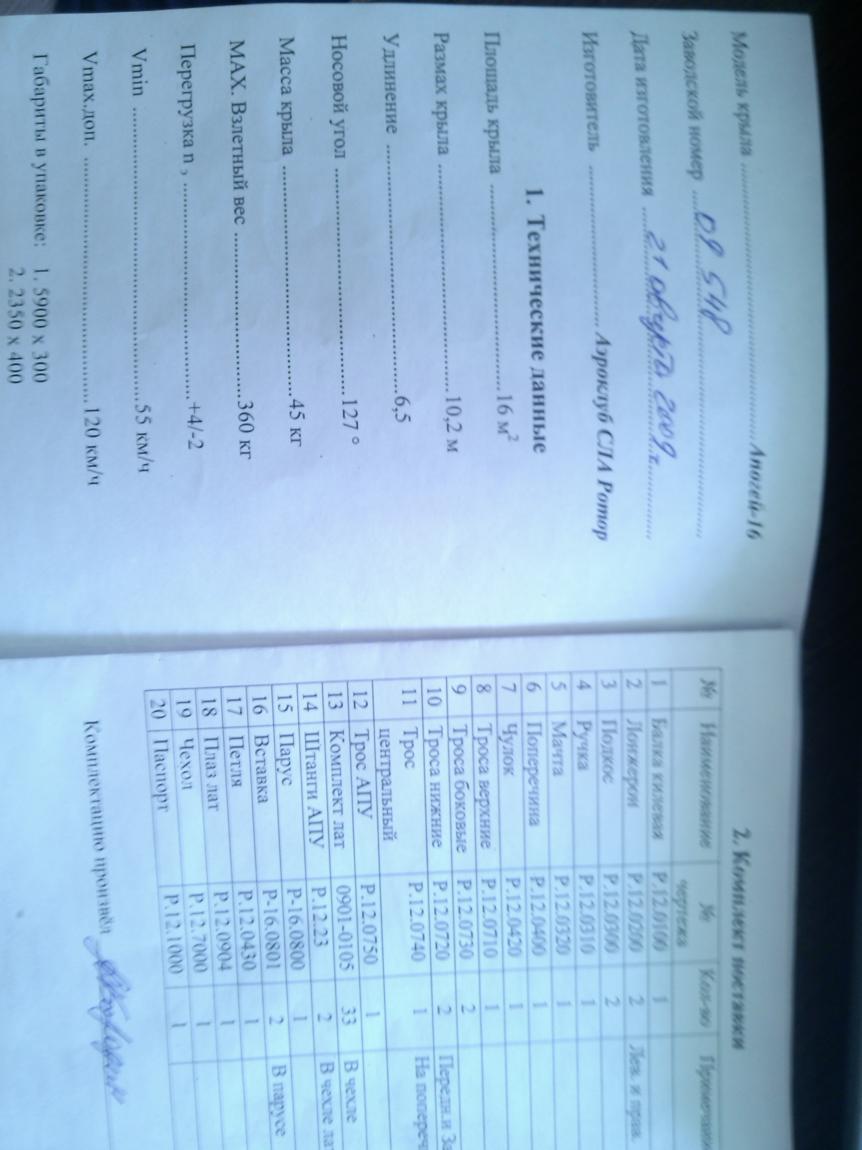 Модель крыла ........ Апогей-16
Заводской номер ........ 09 548
Дата изготовления ........ 21 августа 2009 г.
Изготовитель ........ Аэроклуб СЛА Ротор
1. Технические данные
Площадь крыла ........ 16 м²
Размах крыла ........ 10,2 м
Удлинение ........ 6,5
Носовой угол ........ 127 °
Масса крыла ........ 45 кг
МАХ. Взлетный вес ........ 360 кг
Перегрузка n , ........ +4/-2
Vmin ........ 55 км/ч
Vmax.доп. ........ 120 км/ч
Габариты в упаковке: 1. 5900 х 300
2. 2350 х 400
2. Комплект поставки
№ Наименование № чертежа Кол-во Примечание
1 Балка килевая Р.12.0100 1
2 Лонжерон Р.12.0200 2 Лев. и прав.
3 Подкос Р.12.0300 2
4 Ручка Р.12.0310 1
5 Мачта Р.12.0320 1
6 Поперечина Р.12.0400 1
7 Чулок Р.12.0420 1
8 Троса верхние Р.12.0710 1
9 Троса боковые Р.12.0730 2
10 Троса нижние Р.12.0720 2 Передн.и За
11 Трос Р.12.0740 1 На попереч
центральный
12 Трос АПУ Р.12.0750 1
13 Комплект лат 0901-0105 33 В чехле
14 Штанги АПУ Р.12.23 2 В чехле ла
15 Парус Р-16.0800 1
16 Вставка Р-16.0801 2 В парусе
17 Петля Р.12.0430 1
18 Плаз лат Р.12.0904 1
19 Чехол Р.12.7000 1
20 Паспорт Р.12.1000 1
Комплектацию произвёл